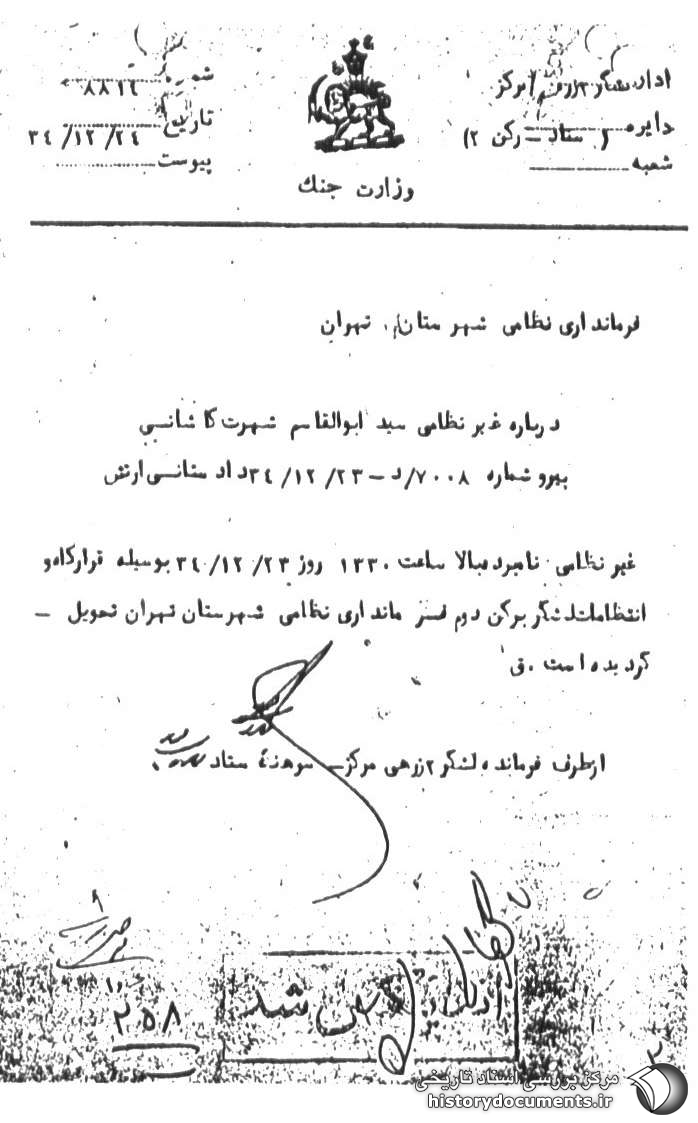 اداره لشگر ۲ زرهی مرکز
دایره (ستاد – رکن ۲)
شعبه
وزارت جنك
شماره ۸۸۱٤
تاریخ ۳٤/۱۲/۲٤
پیوست
فرمانداری نظامی شهرستان تهران
درباره غیر نظامی سید ابوالقاسم شهرت کاشانی
پیرو شماره ۷۰۰۸/د – ۳٤/۱۲/۲۳ دادستانی ارتش
غیر نظامی نامبرده ببالا ساعت ۱۳۳۰ روز ۳٤/۱۲/۲۳ بوسیله قرارگاه و
انتظامات لشگر برکن دوم فرمانداری نظامی شهرستان تهران تحویل –
گردیده است . ق
از طرف فرمانده لشگر ۲ زرهی مرکز – سرهنگ ستاد
۲۵۸
شد
۲
مرکز بررسی اسناد تاریخی
historydocuments.ir